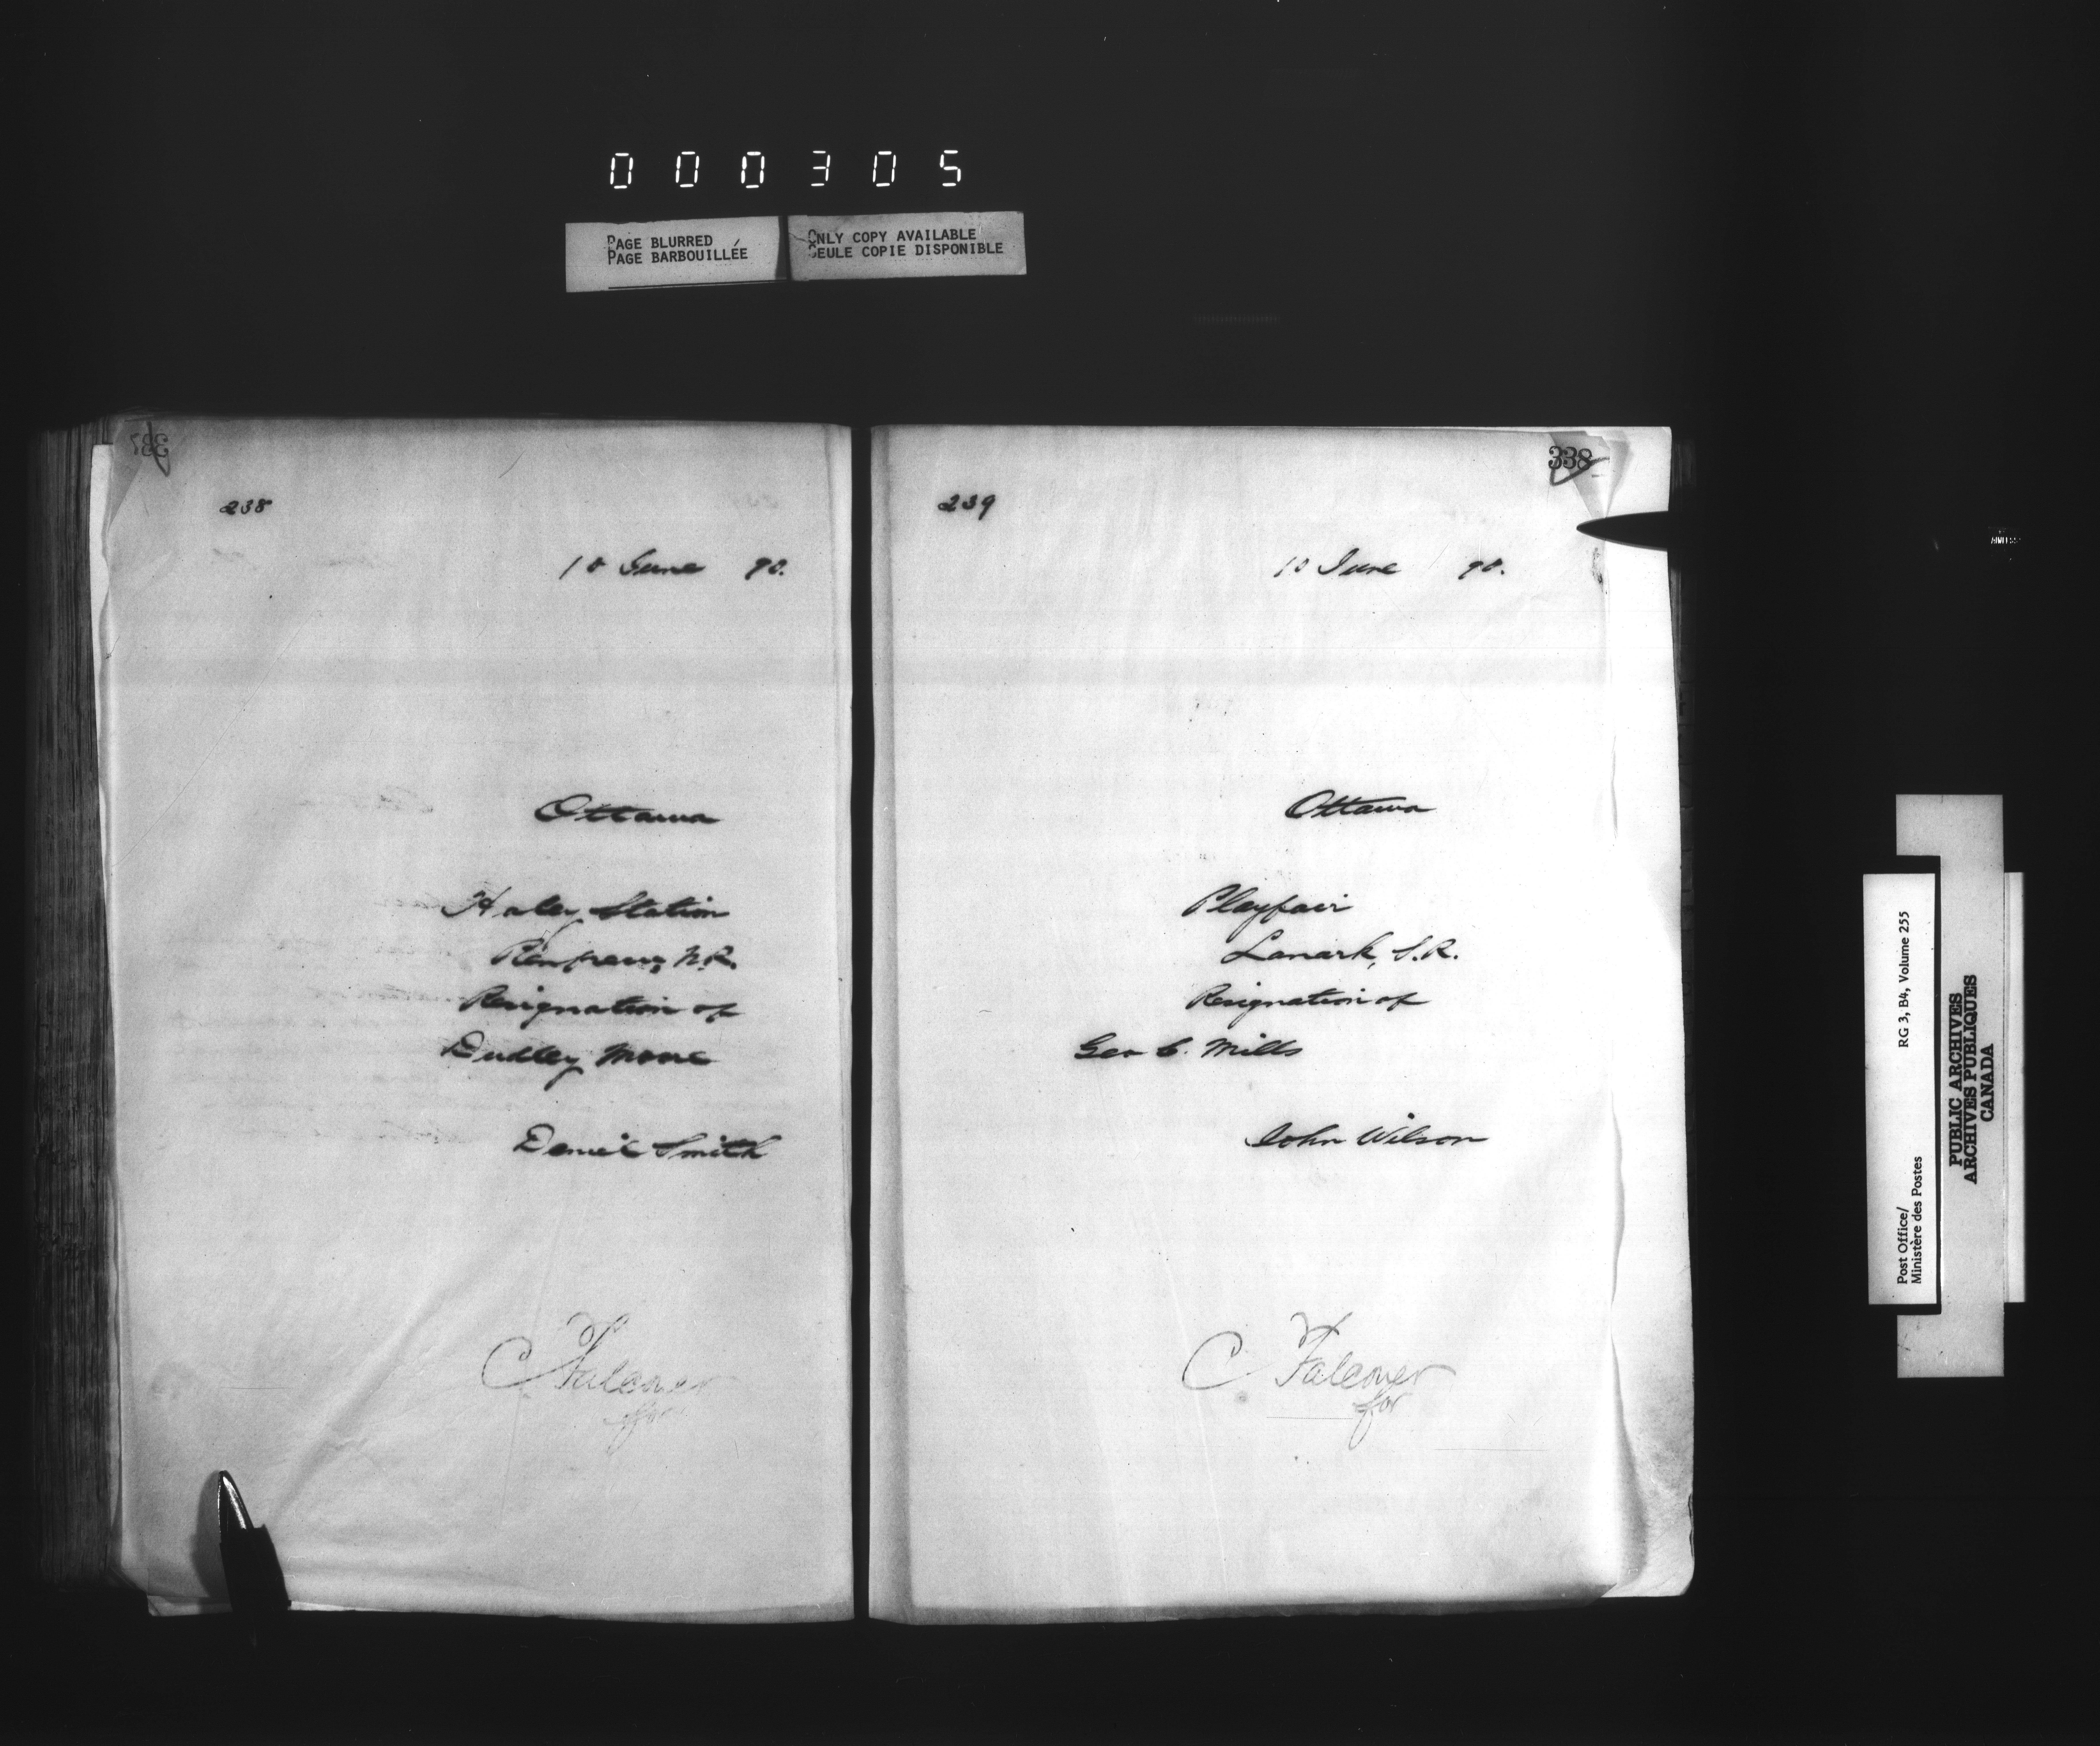 000305
PAGE BLURRED
PAGE BARBOUILLÉE
ONLY COPY AVAILABLE
SEULE COPIE DISPONIBLE
337
238
10 June 90.
Ottawa
Haley Station
Renfrew, N.R.
Resignation of
Dudley Moore
Smith
C Falconer
for
338
239
10 June 90.
Ottawa
Playfair
Lanark, S.R.
Resignation of
Geo C. Mills
John Wilson
C Falconer
for
Post Office/
Ministère des Postes
RG 3, B4, Volume 255
PUBLIC ARCHIVES
ARCHIVES PUBLIQUES
CANADA